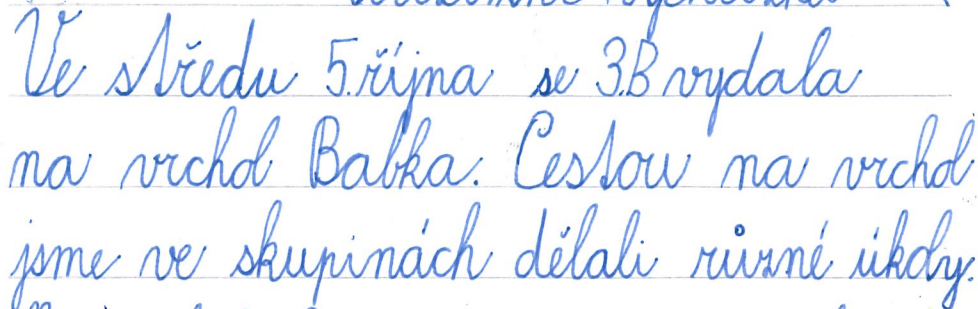 Ve středu 5.října se 3.B vydala
na vrchol Babka. Cestou na vrchol
jsme ve skupinách dělali různé úkoly.